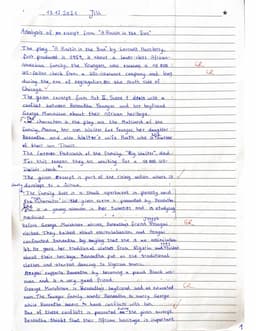 13.12.2021 Jill
Analysis of an excerpt from "A Raisin in the Sun"
The play "A Raisin in the Sun" by Lorraine Hansberry,
first produced in 1959, is about a lower-class African-
American family, the Youngers, who receive a 10 000
US-Dollar check from a life-insurance company and live
during the era of segregation on the South side of
Chicago.
The given excerpt from Act II, Scene 1 deals with a
conflict between Beneatha Younger and her boyfriend
George Murchison about their African heritage.
The characters in the play are the Matriarch of the
family, Mama, her son Walter Lee Younger, her daughter
Beneatha and also Walter's wife Ruth and
of their son Travis.
The former Patriarch of the family "Big Walter" died.
For this reason they're waiting for a 10 000 US-
Dollar check.
The given excerpt is part of the rising action where it
slowly develops to a climax.
The family lives in a small apartment in poverty and
the in the given scene is presented by Beneatha
who is a young woman in her twenties and is studying
medicine.
Before George Murchison arrives, Beneatha's friend Asagai
visited. They talked about assimilationism and Asagai
confronted Beneatha by saying that she is an assimilation-
ist. He gave her traditional clothes from Nigeria and
about their heritage. Beneatha put on the traditional
clothes and started dancing to Nigerian music.
Asagai supports Beneatha by becoming a proud Black wo-
man and is a very good friend.
George Murchison is Beneatha's boyfriend and an educated
man. The Younger family wants Beneatha to marry George
while Beneatha seems to have conflicts with him.
One of these conflicts is presented in the given excerpt.
Beneatha thinks that their African heritage is important
1